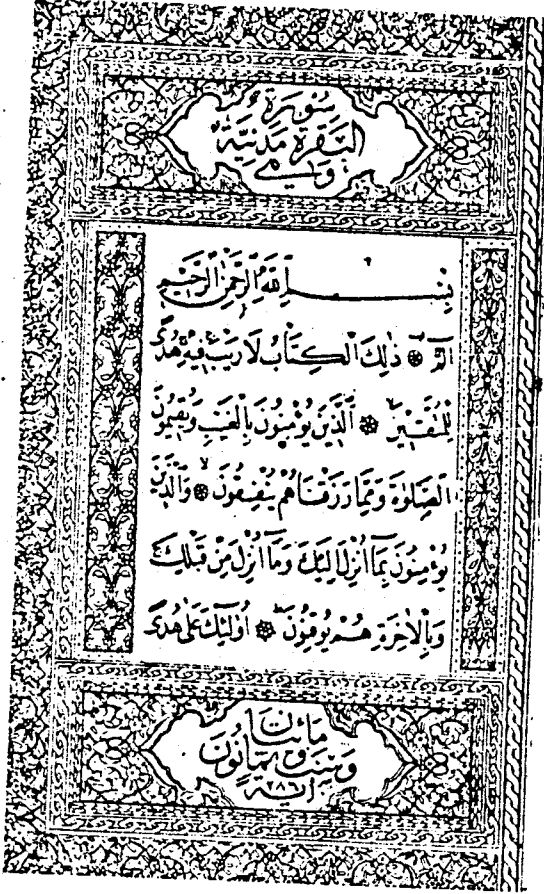 سُورَةُ
الْبَقَرَةِ مَدَنِيَّةٌ
وَهِيَ
بِسْمِ اللّٰهِ الرَّحْمٰنِ الرَّحِيمِ
الٓمٓ ❁ ذٰلِكَ الْكِتَابُ لَا رَيْبَ فِيهِ هُدًى
لِلْمُتَّقِينَ ❁ اَلَّذِينَ يُؤْمِنُونَ بِالْغَيْبِ وَيُقِيمُونَ
الصَّلٰوةَ وَمِمَّا رَزَقْنَاهُمْ يُنْفِقُونَ ❁ وَالَّذِينَ
يُؤْمِنُونَ بِمَٓا اُنْزِلَ اِلَيْكَ وَمَٓا اُنْزِلَ مِنْ قَبْلِكَ
وَبِالْاٰخِرَةِ هُمْ يُوقِنُونَ ❁ اُولٰٓئِكَ عَلٰى هُدًى
مِائَتَانِ
وَسِتٌّ وَثَمَانُونَ
اٰيَة ٢٨٦